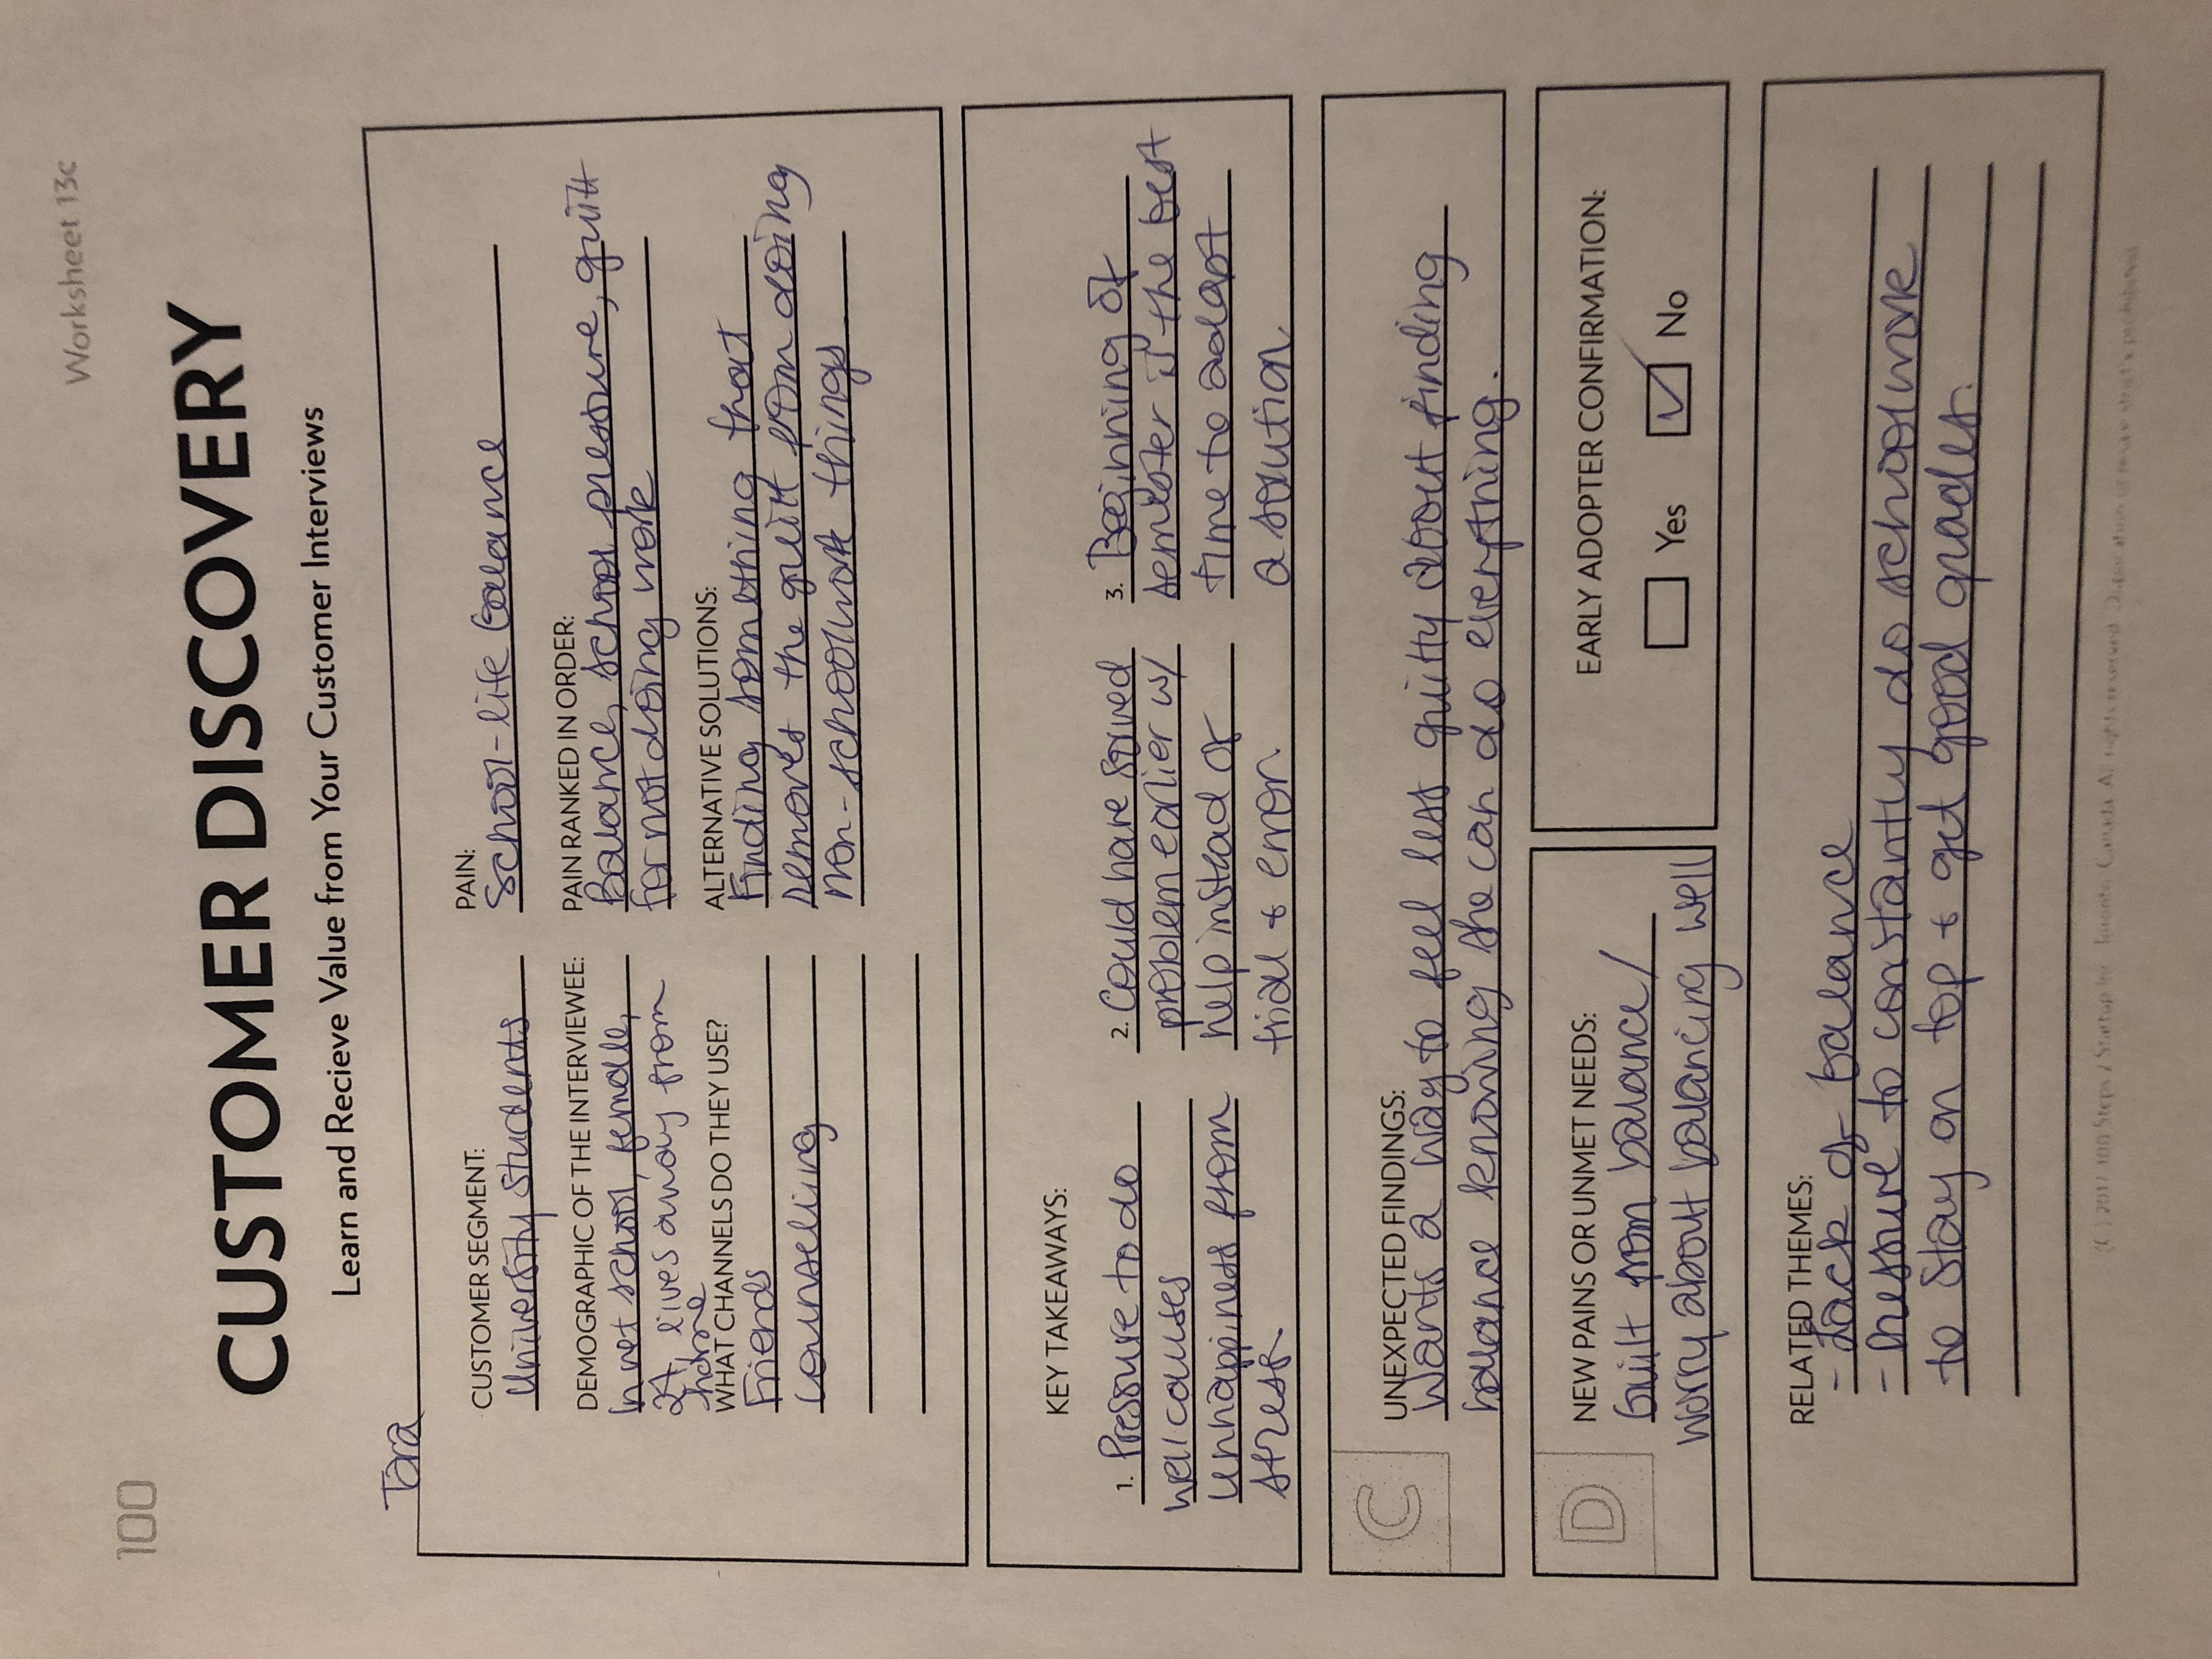 Worksheet 13c
100
CUSTOMER DISCOVERY
Learn and Recieve Value from Your Customer Interviews
Tara
CUSTOMER SEGMENT:
University Students
DEMOGRAPHIC OF THE INTERVIEWEE:
In vet school, female,
27, lives away from
home
WHAT CHANNELS DO THEY USE?
Friends
counselling
PAIN:
School-life balance
PAIN RANKED IN ORDER:
Balance, school pressure, guilt
for not doing work
ALTERNATIVE SOLUTIONS:
Finding something that
removes the guilt from doing
non-schoolwork things.
KEY TAKEAWAYS:
1. Pressure to do
well causes
unhappiness from
stress.
2. Could have solved
problem earlier w/
help instead of
trial & error.
3. Beginning of
semester is the best
time to adapt
a solution.
C
UNEXPECTED FINDINGS:
Wants a way to feel less guilty about finding
balance knowing she can do everything.
D
NEW PAINS OR UNMET NEEDS:
Guilt from balance/
worry about balancing well
EARLY ADOPTER CONFIRMATION:
Yes No
RELATED THEMES:
- Lack of balance
- Pressure to constantly do schoolwork
to stay on top & get good grades.
(C) 2017 100 Steps 2 Startup Inc. Toronto, Canada. All rights reserved. Duplication of strictly prohibited